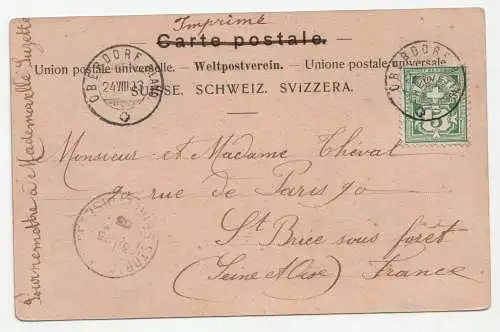 Imprimé
Carte postale.
Union postale universelle. – Weltpostverein. – Unione postale universale
SUISSE. SCHWEIZ. SVIZZERA.
OBERDORF
24 VIII
OBERDORF
5
Monsieur et Madame Théval
90 rue de Paris 90
St Brice sous forêt
(Seine & Oise) France
à Mademoiselle Suzette